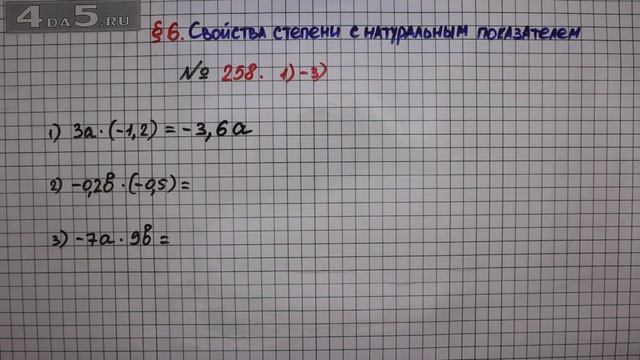 4DA5.RU
§6. Свойства степени с натуральным показателем
№ 258. 1)-3)
1) 3a·(-1,2)=-3,6a
2) -0,2b·(-0,5)=
3) -7a·9b=